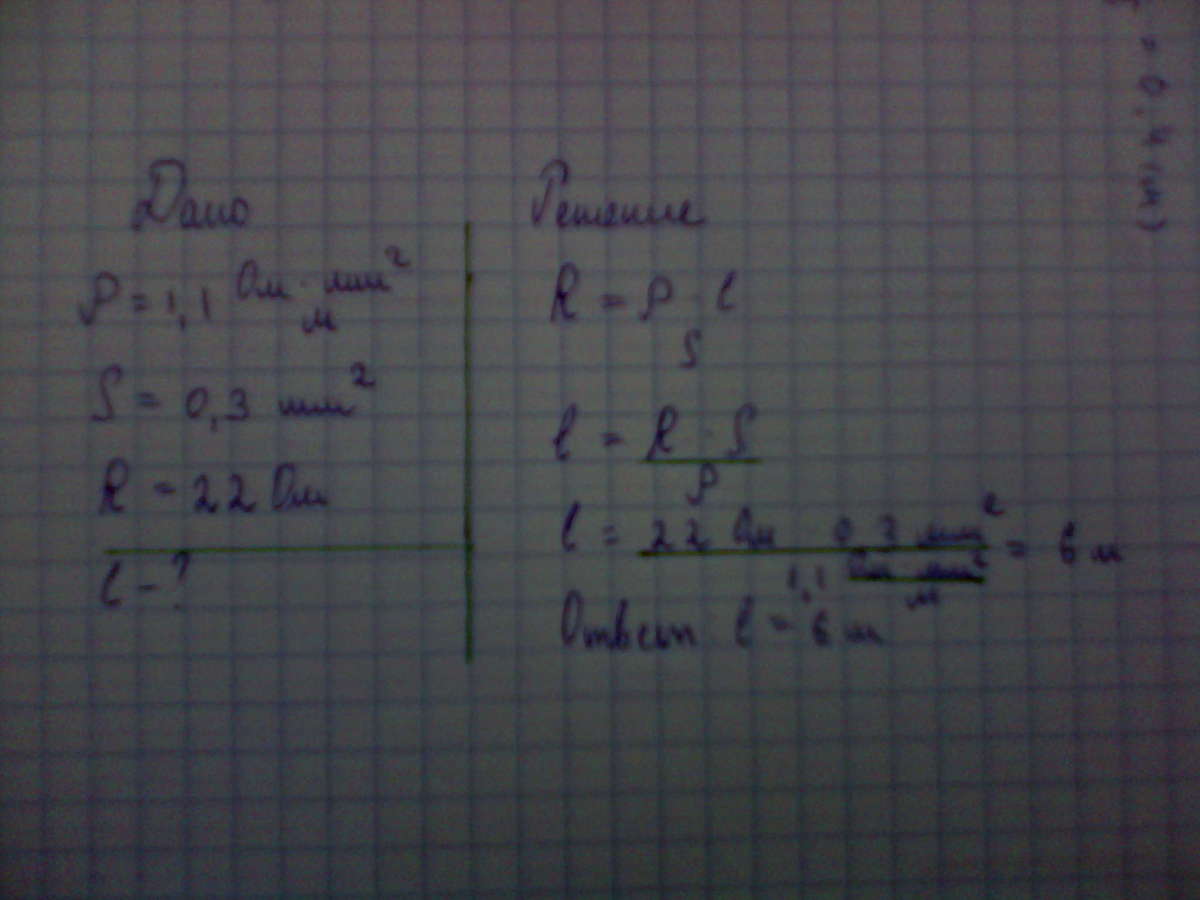 Дано
ρ = 1,1 Ом · мм²
м
S = 0,3 мм²
R = 22 Ом
l - ?
Решение
R = ρ · l
S
l = R · S
ρ
l = 22 Ом 0,3 мм² = 6 м
1,1 Ом мм²
м
Ответ l = 6 м
= 0,4 (м)